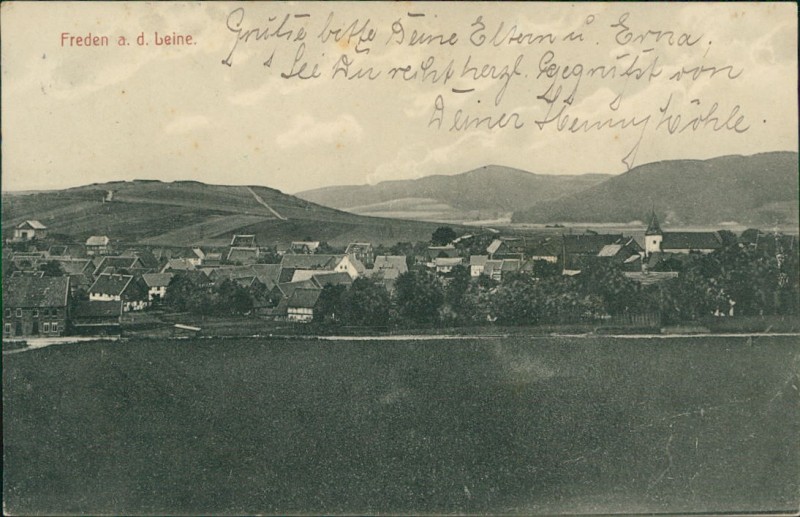 Freden a. d. Leine.
Grüße bitte Deine Eltern u. Erna.
Sei Du recht herzl. Gegrüßt von
Deiner Henny Höhle.